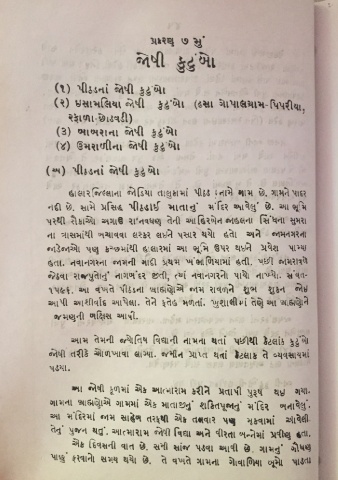 પ્રકરણ ૭ મું
જોષી કુટુંબો
(૧) પીઠડનાં જોષી કુટુંબો
(૨) ઇસામલિયા જોષી કુટુંબો (ઢસા ગોપાલગ્રામ-પિપરીયા,
રફાળા-છોડવડી)
(૩) ભાભરાના જોષી કુટુંબો
(૪) ઉમરાળીના જોષી કુટુંબો
(અ) પીઠડનાં જોષી કુટુંબો
હાલારજિલ્લાના જોડિયા તાલુકામાં પીઠડ નામે ગામ છે. ગામને પાદર
નદી છે. સામે પ્રસિદ્ધ પીઠડાઈ માતાનું મંદિર આવેલું છે. આ ભૂમિ
પરથી સૈકાઓ અગાઉ રા'નવઘણ તેની બહેન જાહલને સિંધના સુમરા
ના ત્રાસમાંથી બચાવવા લશ્કર લઈને પસાર થયો હતો અને જામનગરના
જાડેજાઓ પણ કચ્છમાંથી હાલારમાં આ ભૂમિ ઉપર થઈને પ્રવેશ પામ્યા
હતા. નવાનગરના જામની ગાદી પ્રથમ ખંભાળિયામાં હતી. પછી જામરાવળે
જેઠવા રાજપુતોનું નાગબંદર જીતી, ત્યાં નવાનગરનો પાયો નાખ્યો. સંવત-
૧૫૯૬. આ વખતે પીઠડના બ્રાહ્મણોએ જામ રાવળને શુભ શુકન જોઈ
આપી આશીર્વાદ આપેલા. તેને ફતેહ મળતાં, ખુશાલીમાં તેણે આ બ્રાહ્મણોને
જમણની ભક્ષિસ આપી.
આમ તેમની જ્યોતિષ વિદ્યાની નામના થતાં પછીથી કેટલાંક કુટુંબો
જોષી તરીકે ઓળખાવા લાગ્યા. જમીન પ્રાપ્ત થતાં કેટલાક તે વ્યવસાયમાં
પડયા.
આ જોષી કુળમાં એક આત્મારામ કરીને પ્રતાપી પુરૂષ થઈ ગયા.
ગામના બ્રાહ્મણોએ ગામમાં એક માતાજીનું શક્તિપૂજનું મંદિર બનાવેલું.
આ મંદિરમાં જામ સાહેબ તરફથી એક તલવાર પણ મૂકવામાં આવેલી.
તેનું પુજન થતું. આત્મારામ જોષી વિદ્યા અને વીરતા બન્નેમાં પ્રવીણ હતા.
એક દિવસની વાત છે. સમી સાંજ પડવા આવી છે. ગામનું ગૌધણ
પાછું ફરવાનો સમય થયો છે. તે વખતે ગામના ગોવાળિયા બૂમો પાડતા